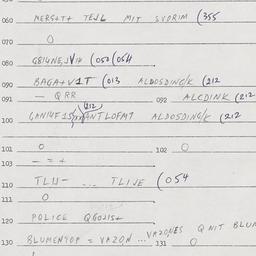 060 MERS+T+ TEJL MIT SVORIM (355
070 O
080 (052 (054
090 BAGA+V1T (013 ALDOSDING/K (212
091 — QRR 092 ALCDINK (212
100 (212 ALDOSDING/K (212
101 O 102 O
103 — = +
110 TLIJ- ... TLIJE (054
111 O
120 POLICE
130 BLUMENTOP = VAZON ... VAZONES Q NIT BLUM
131 O